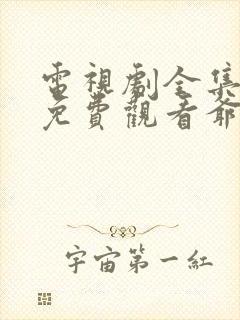 電視劇全集
免費觀看爺
宇宙第一紅